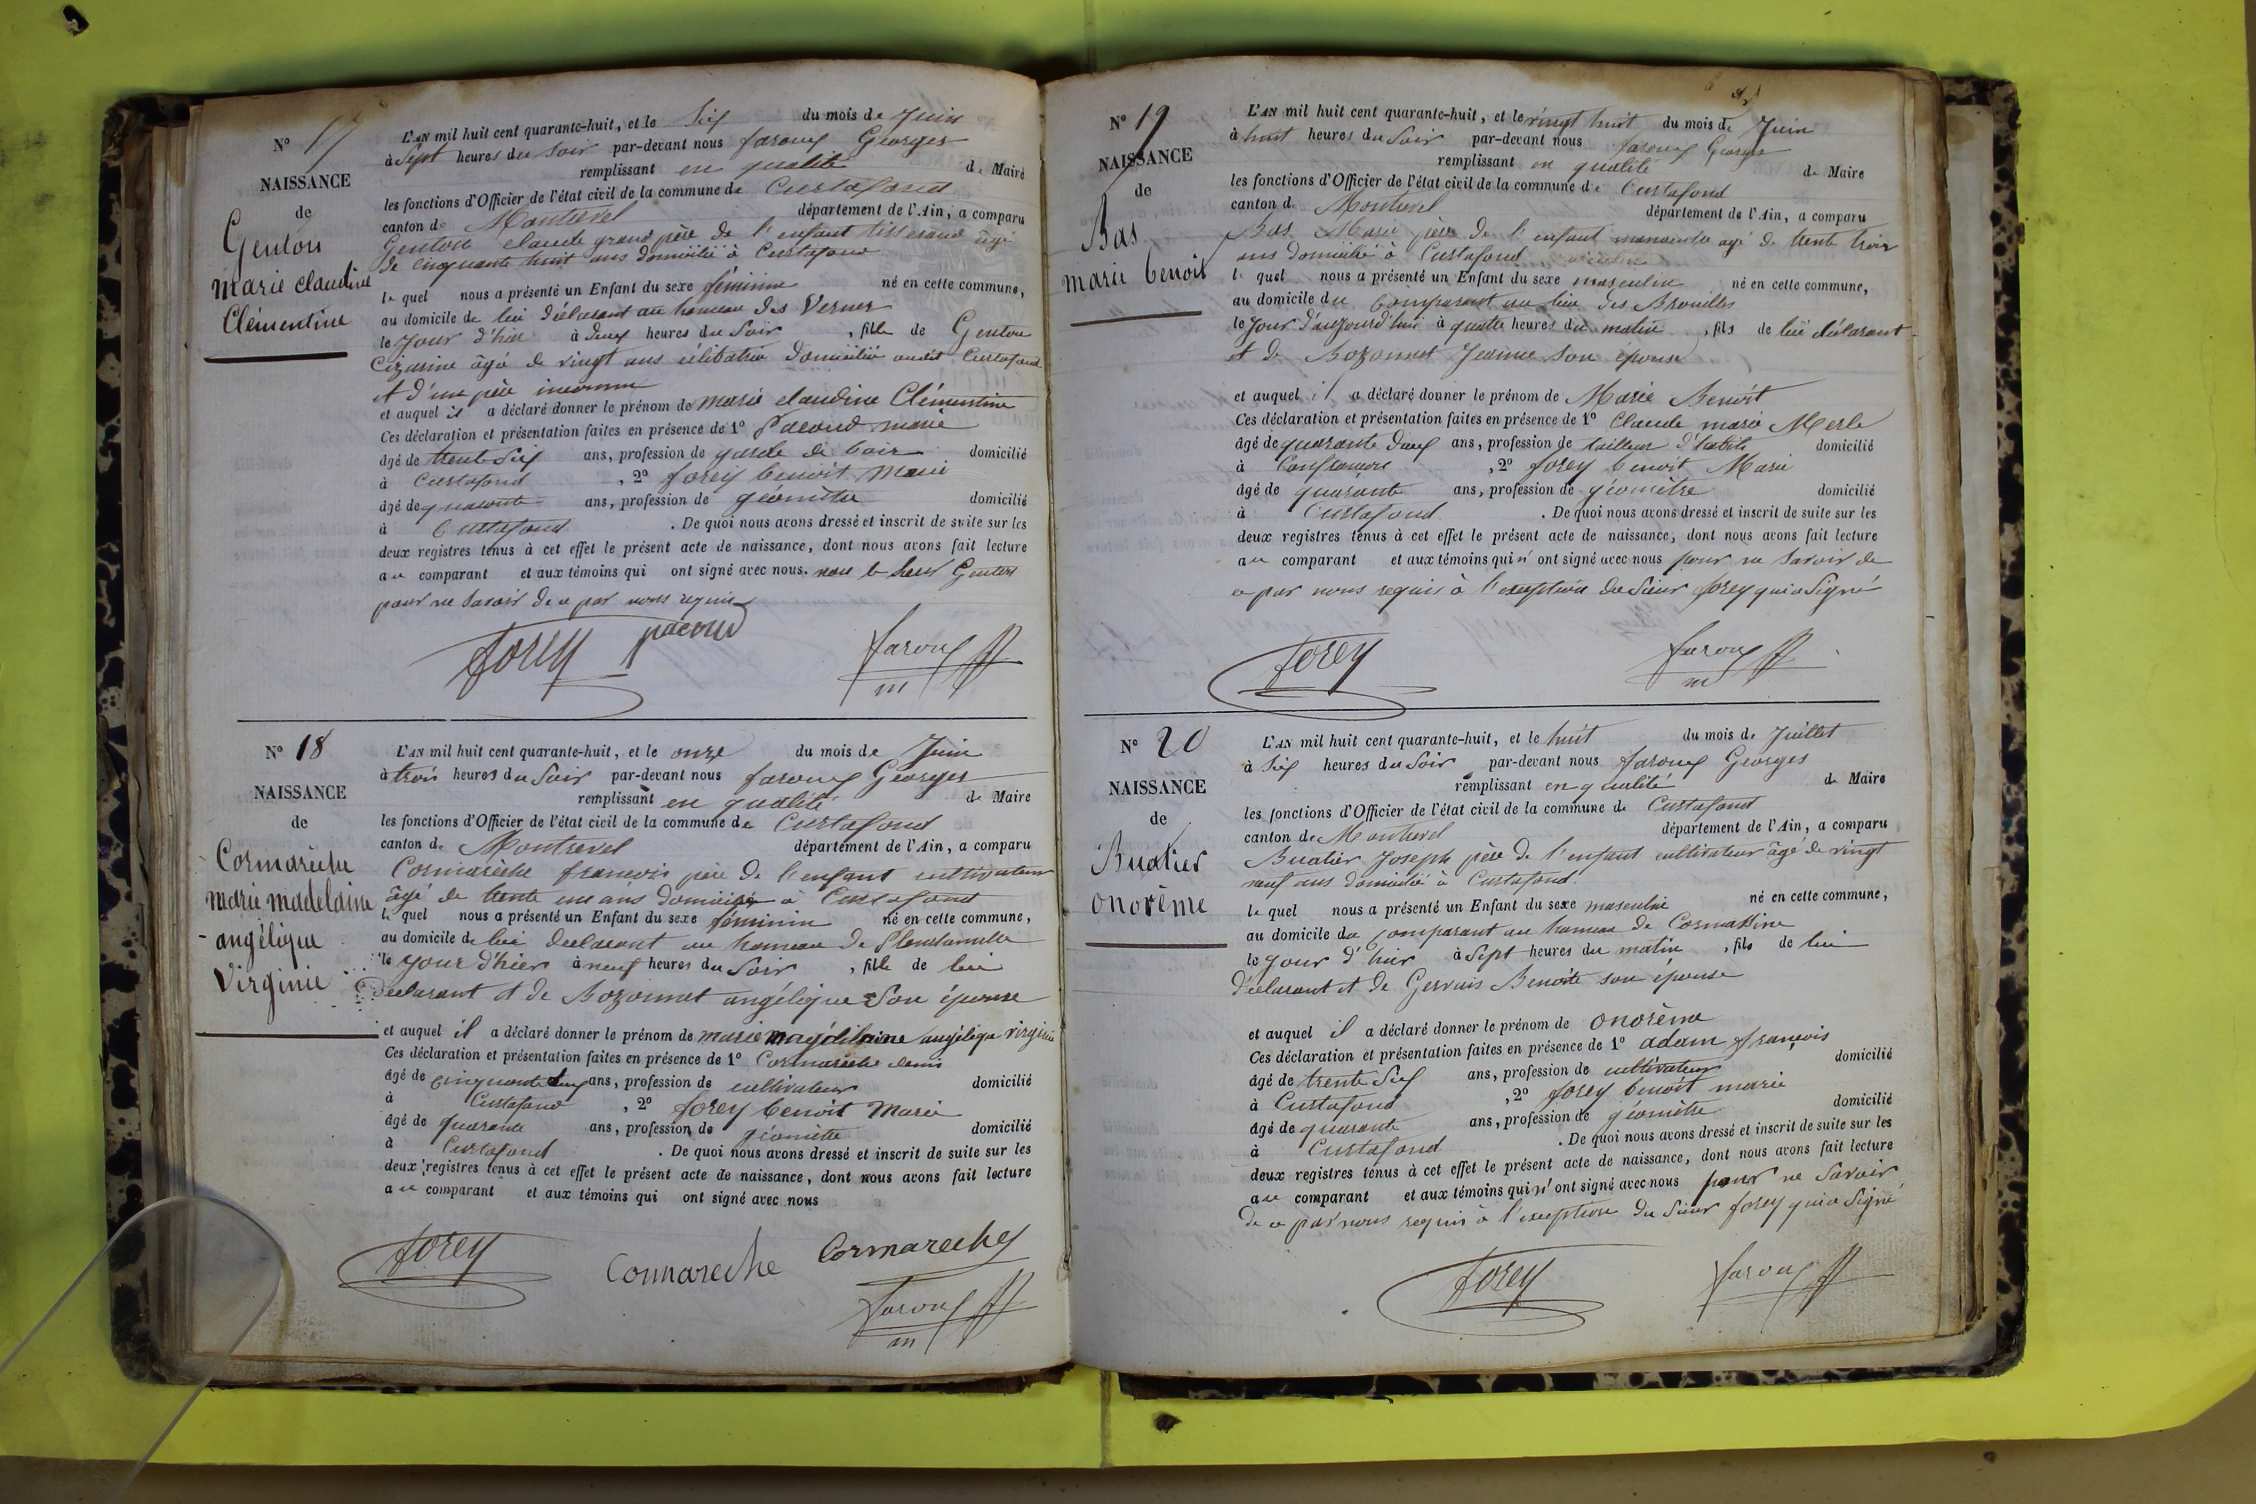 N° 17
NAISSANCE
de
Genton
marie claudine
Clémentine
L'AN mil huit cent quarante-huit, et le Six du mois de Juin
à Sept heures du Soir par-devant nous faroux Georges
remplissant en qualité de Maire
les fonctions d'Officier de l'état civil de la commune de Curtafond
canton de Montrevel département de l'Ain, a comparu
Genton claude grand père de l'enfant tisserand âgé
de cinquante huit ans domicilié à Curtafond
le quel nous a présenté un Enfant du sexe féminin né en cette commune,
au domicile de lui déclarant au hameau des Vernes
le Jour d'hier à deux heures du Soir, fille de Genton
Cizarine âgé de vingt ans célibataire domicilié audit Curtafond
et d'un père inconnu
et auquel il a déclaré donner le prénom de marie claudine Clémentine
Ces déclaration et présentation faites en présence de 1° Pacoud marie
âgé de trente Six ans, profession de garde de bois domicilié
à Curtafond, 2° forey benoit Marie
âgé de quarante ans, profession de géomètre domicilié
à Curtafond. De quoi nous avons dressé et inscrit de suite sur les
deux registres tenus à cet effet le présent acte de naissance, dont nous avons fait lecture
au comparant et aux témoins qui ont signé avec nous. non le Sieur Genton
pour ne Savoir de ce par nous requis
forey pacoud faroux
m
N° 18
NAISSANCE
de
Cormarèche
marie madelaine
angélique
Virginie
L'AN mil huit cent quarante-huit, et le onze du mois de Juin
à trois heures du Soir par-devant nous faroux Georges
remplissant en qualité de Maire
les fonctions d'Officier de l'état civil de la commune de Curtafond
canton de Montrevel département de l'Ain, a comparu
Cormarèche françois père de l'enfant cultivateur
âgé de trente un ans domicilié à Curtafond
le quel nous a présenté un Enfant du sexe féminin né en cette commune,
au domicile de lui déclarant au hameau de
le Jour d'hier à neuf heures du Soir, fille de lui
Déclarant et de Bozonnet angélique Son épouse
et auquel il a déclaré donner le prénom de marie magdelaine angélique virginie
Ces déclaration et présentation faites en présence de 1° Cormarèche denis
âgé de cinquante deux ans, profession de cultivateur domicilié
à Curtafond, 2° forey benoit Marie
âgé de quarante ans, profession de géomètre domicilié
à Curtafond. De quoi nous avons dressé et inscrit de suite sur les
deux registres tenus à cet effet le présent acte de naissance, dont nous avons fait lecture
au comparant et aux témoins qui ont signé avec nous
forey Cormareche Cormareche
faroux
m
N° 19
NAISSANCE
de
Bas
marie benoit
L'AN mil huit cent quarante-huit, et le vingt huit du mois de Juin
à huit heures du Soir par-devant nous faroux Georges
remplissant en qualité de Maire
les fonctions d'Officier de l'état civil de la commune de Curtafond
canton de Montrevel département de l'Ain, a comparu
Bas Marie père de l'enfant manœuvre âgé de trente trois
ans domicilié à Curtafond
le quel nous a présenté un Enfant du sexe masculin né en cette commune,
au domicile du Comparant au lieu des Brouilles
le Jour d'aujourd'hui à quatre heures du matin, fils de lui déclarant
et de Bozonnet Jeanne Son épouse
et auquel il a déclaré donner le prénom de Marie Benoit
Ces déclaration et présentation faites en présence de 1° Claude marie Merle
âgé de quarante deux ans, profession de tailleur d'habits domicilié
à Confrançon, 2° forey benoit Marie
âgé de quarante ans, profession de géomètre domicilié
à Curtafond. De quoi nous avons dressé et inscrit de suite sur les
deux registres tenus à cet effet le présent acte de naissance, dont nous avons fait lecture
au comparant et aux témoins qui n'ont signé avec nous pour ne Savoir de
ce par nous requis à l'exception du Sieur forey qui a Signé
forey faroux
m
N° 20
NAISSANCE
de
Buatier
onorème
L'AN mil huit cent quarante-huit, et le huit du mois de Juillet
à Six heures du Soir par-devant nous faroux Georges
remplissant en qualité de Maire
les fonctions d'Officier de l'état civil de la commune de Curtafond
canton de Montrevel département de l'Ain, a comparu
Buatier Joseph père de l'enfant cultivateur âgé de vingt
neuf ans domicilié à Curtafond
le quel nous a présenté un Enfant du sexe masculin né en cette commune,
au domicile du Comparant au hameau de
le Jour d'hier à Sept heures du matin, fils de lui
Déclarant et de Gervais Benoite son épouse
et auquel il a déclaré donner le prénom de onorème
Ces déclaration et présentation faites en présence de 1° adam françois
âgé de trente Six ans, profession de cultivateur domicilié
à Curtafond, 2° forey benoit marie
âgé de quarante ans, profession de géomètre domicilié
à Curtafond. De quoi nous avons dressé et inscrit de suite sur les
deux registres tenus à cet effet le présent acte de naissance, dont nous avons fait lecture
au comparant et aux témoins qui n'ont signé avec nous pour ne Savoir
de ce par nous requis à l'exception du Sieur forey qui a Signé
forey faroux